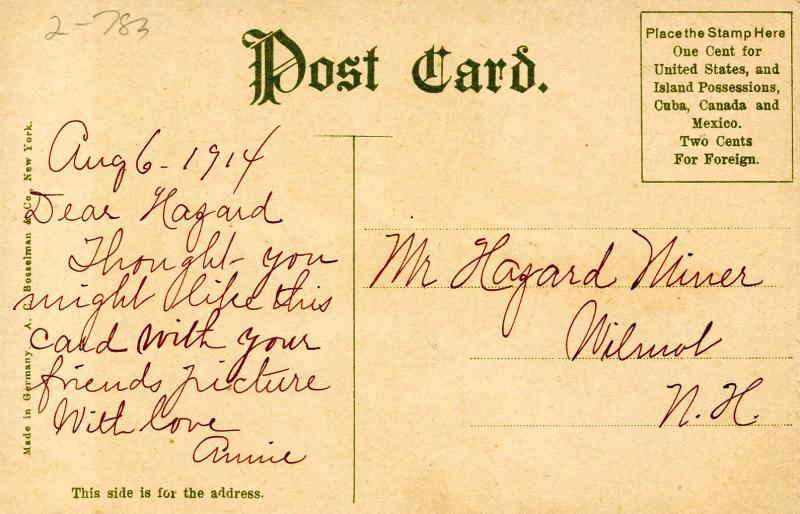 2-783
Post Card.
Place the Stamp Here
One Cent for
United States, and
Island Possessions,
Cuba, Canada and
Mexico.
Two Cents
For Foreign.
Made in Germany, A. C. Bosselman & Co., New York.
Aug 6 - 1914
Dear Hazard
Thought you
might like this
card with your
friends picture
With love
Annie
This side is for the address.
Mr Hazard Miner
Wilmot
N. H.